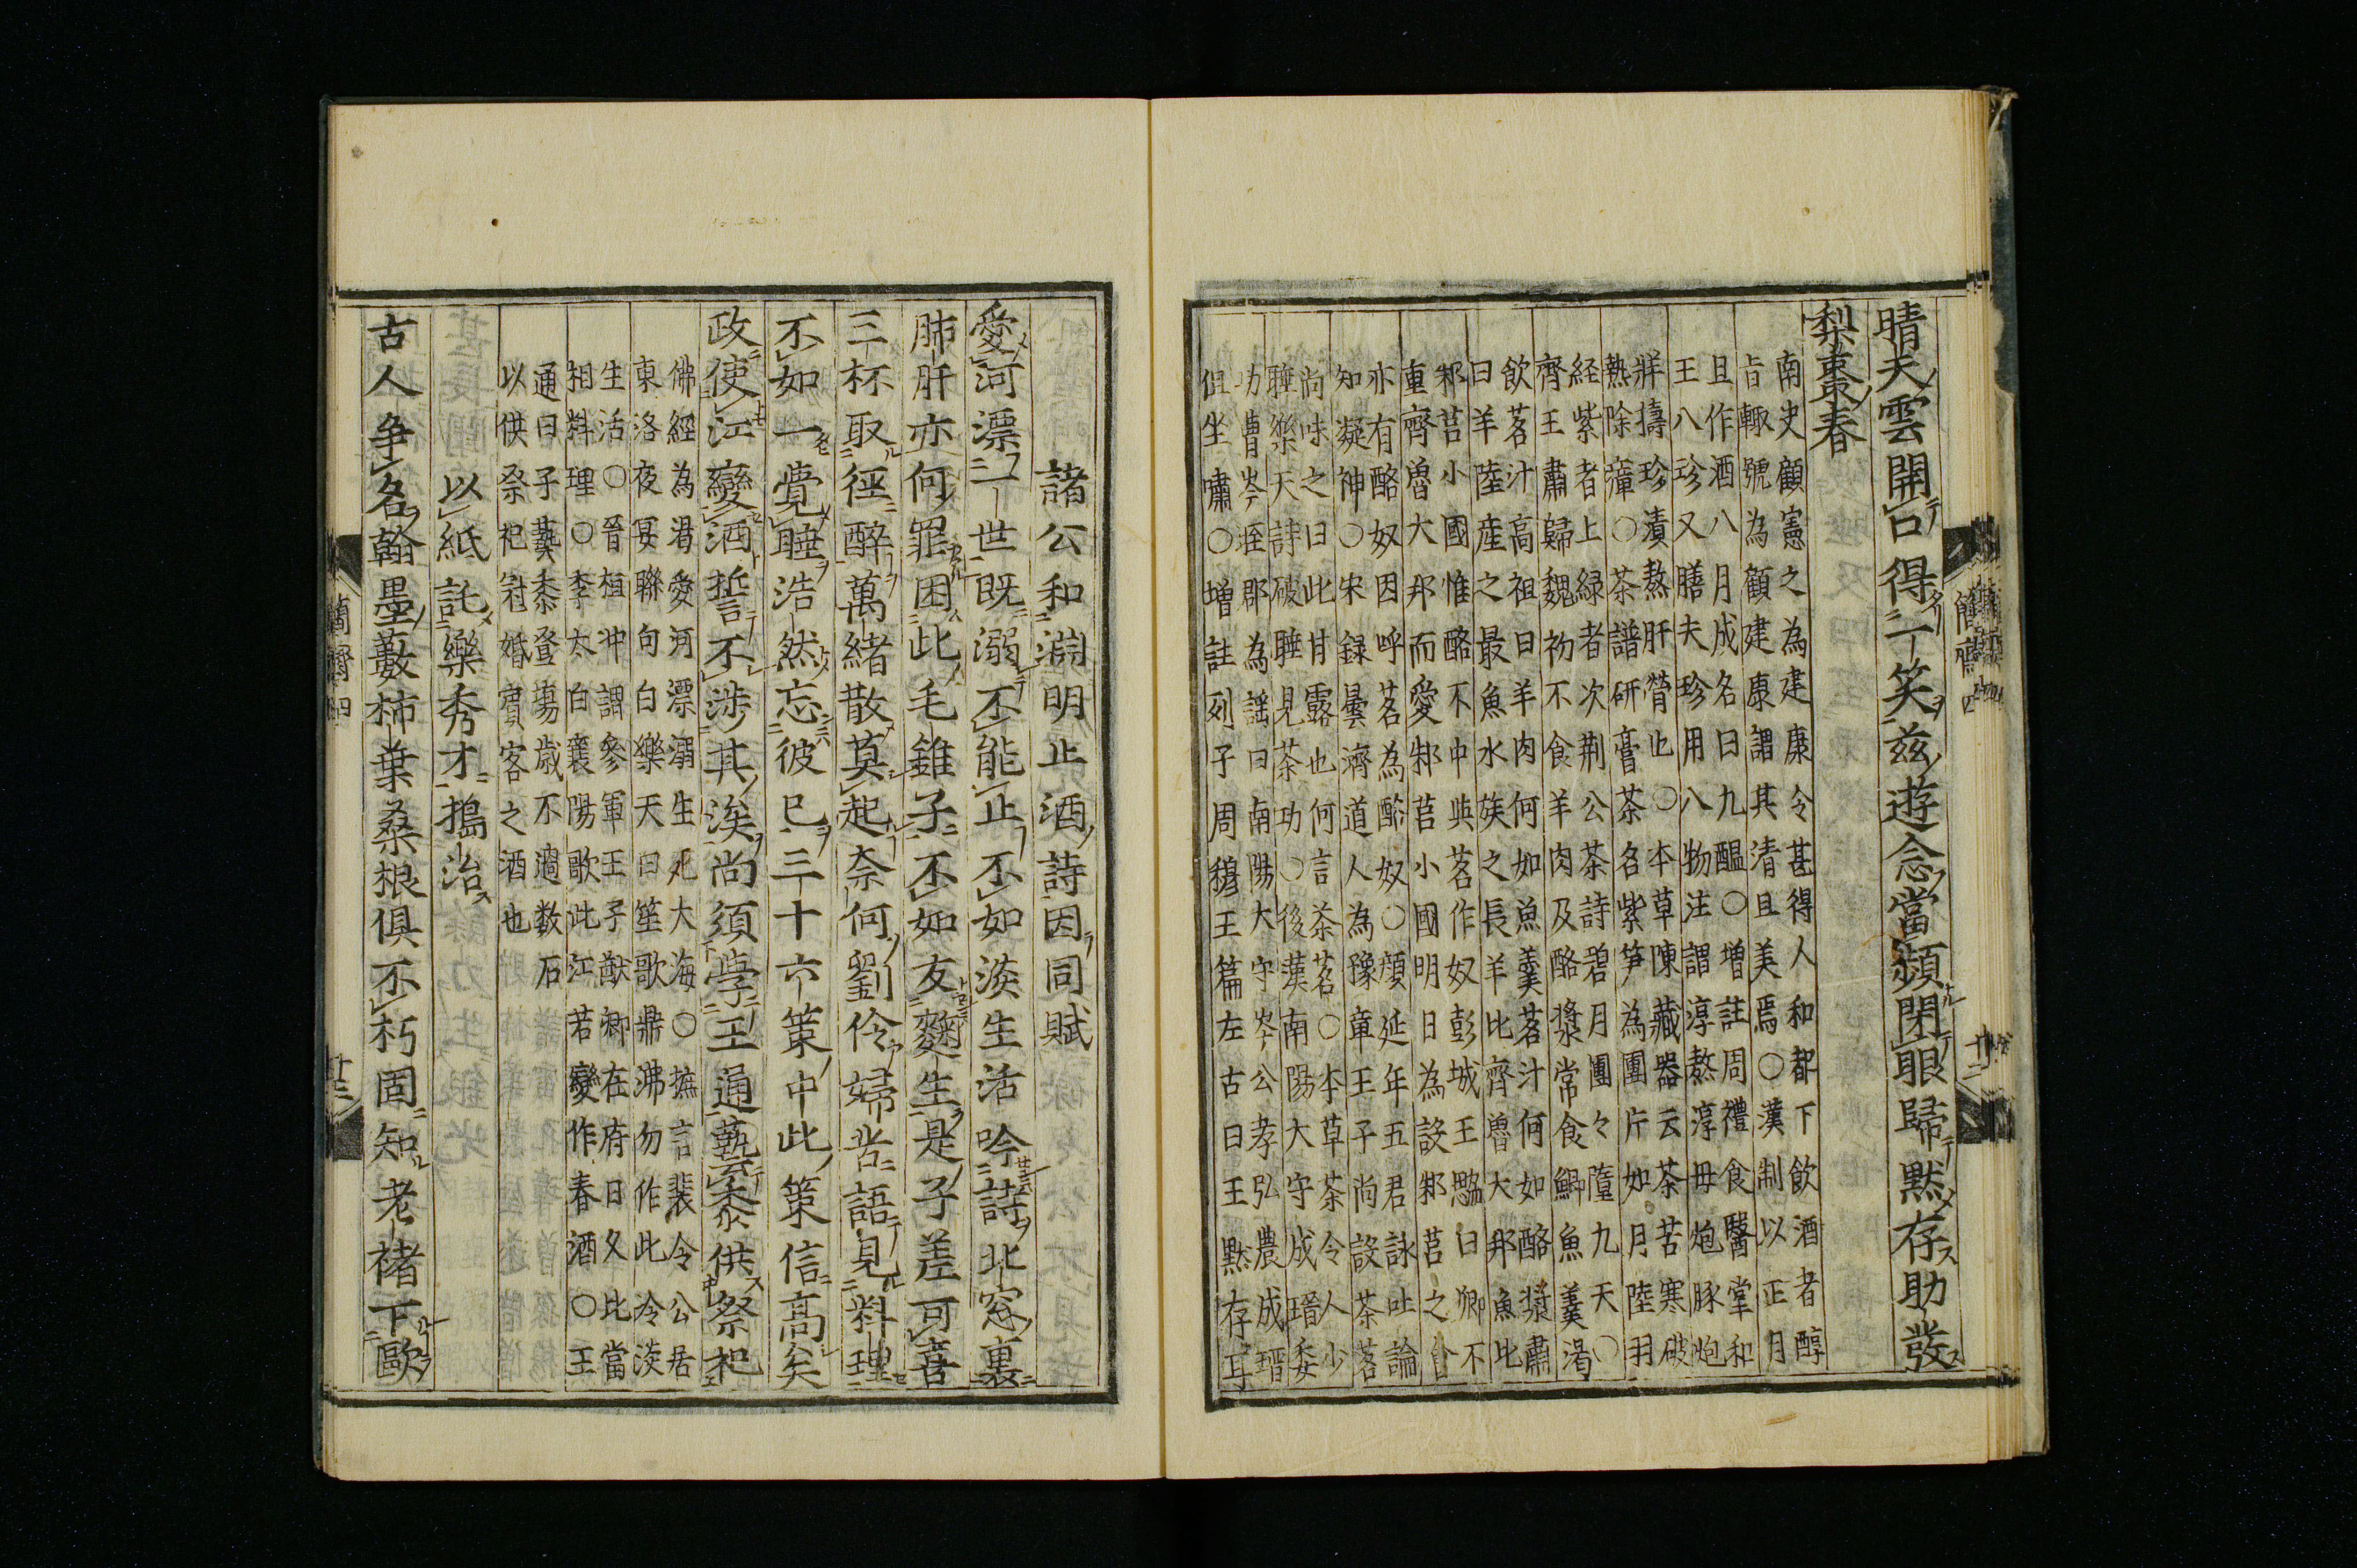 晴天雲開口得一笑茲遊念當頻閉眼歸默存助發
梨棗春
南史顧憲之為建康令甚得人和都下飲酒者醇
旨輙號為顧建康謂其清且美焉○漢制以正月
且作酒八月成名曰九醖○增註周禮食醫堂和
王八珍又膳夫珍用八物注謂淳熬淳母炮豚炮
牂擣珍漬熬肝膋也○本草陳藏器云茶苦寒破
熱除瘴○茶譜研膏茶名紫笋為團片如月陸羽
経紫者上緑者次荆公茶詩碧月團々隨九天○
齊王肅歸魏初不食羊肉及酪漿常食鯽魚羹渇
飲茗汁高祖曰羊肉何如魚羹茗汁何如酪漿肅
曰羊陸産之最魚水族之長羊比齊魯大邦魚比
邾莒小國惟酪不中與茗作奴彭城王勰曰卿不
重齊魯大邦而愛邾莒小國明日為設邾莒之會
亦有酪奴因呼茗為酪奴○顔延年五君詠吐論
知凝神○宋録曇濟道人為豫章王子尚設茶茗
尚味之曰此甘露也何言茶茗○本草茶令人少
睡樂天詩破睡見茶功○後漢南陽大守成瑨委
功曹岑晊郡為謡曰南陽大守岑公孝弘農成瑨
但坐嘯○増註列子周穆王篇左古曰王默存耳
諸公和淵明止酒詩因同賦
愛河漂一世既溺不能止不如淡生活吟詩北窓裏
肺肝亦何罪困此毛錐子不如友麴生是子差可喜
三杯取徑醉萬緒散莫起奈何劉伶婦苦語見料理
不如一覺睡浩然忘彼已三十六策中此策信高矣
政使江變酒誓不涉其涘尚須學王通藝黍供祭祀
佛經為渇愛河漂溺生死大海○摭言裴令公居
東洛夜宴聯句白樂天曰笙歌鼎沸勿作此冷淡
生活○晉桓冲謂參軍王子猷卿在府日久比當
相料理○李太白襄陽歌此江若變作春酒○王
通曰子藝黍登塲歳不過数石
以供祭祀冠婚賓客之酒也
以紙託樂秀才搗治
古人争名翰墨藪柿葉桑根俱不朽固知老褚下歐
簡齋四
十三